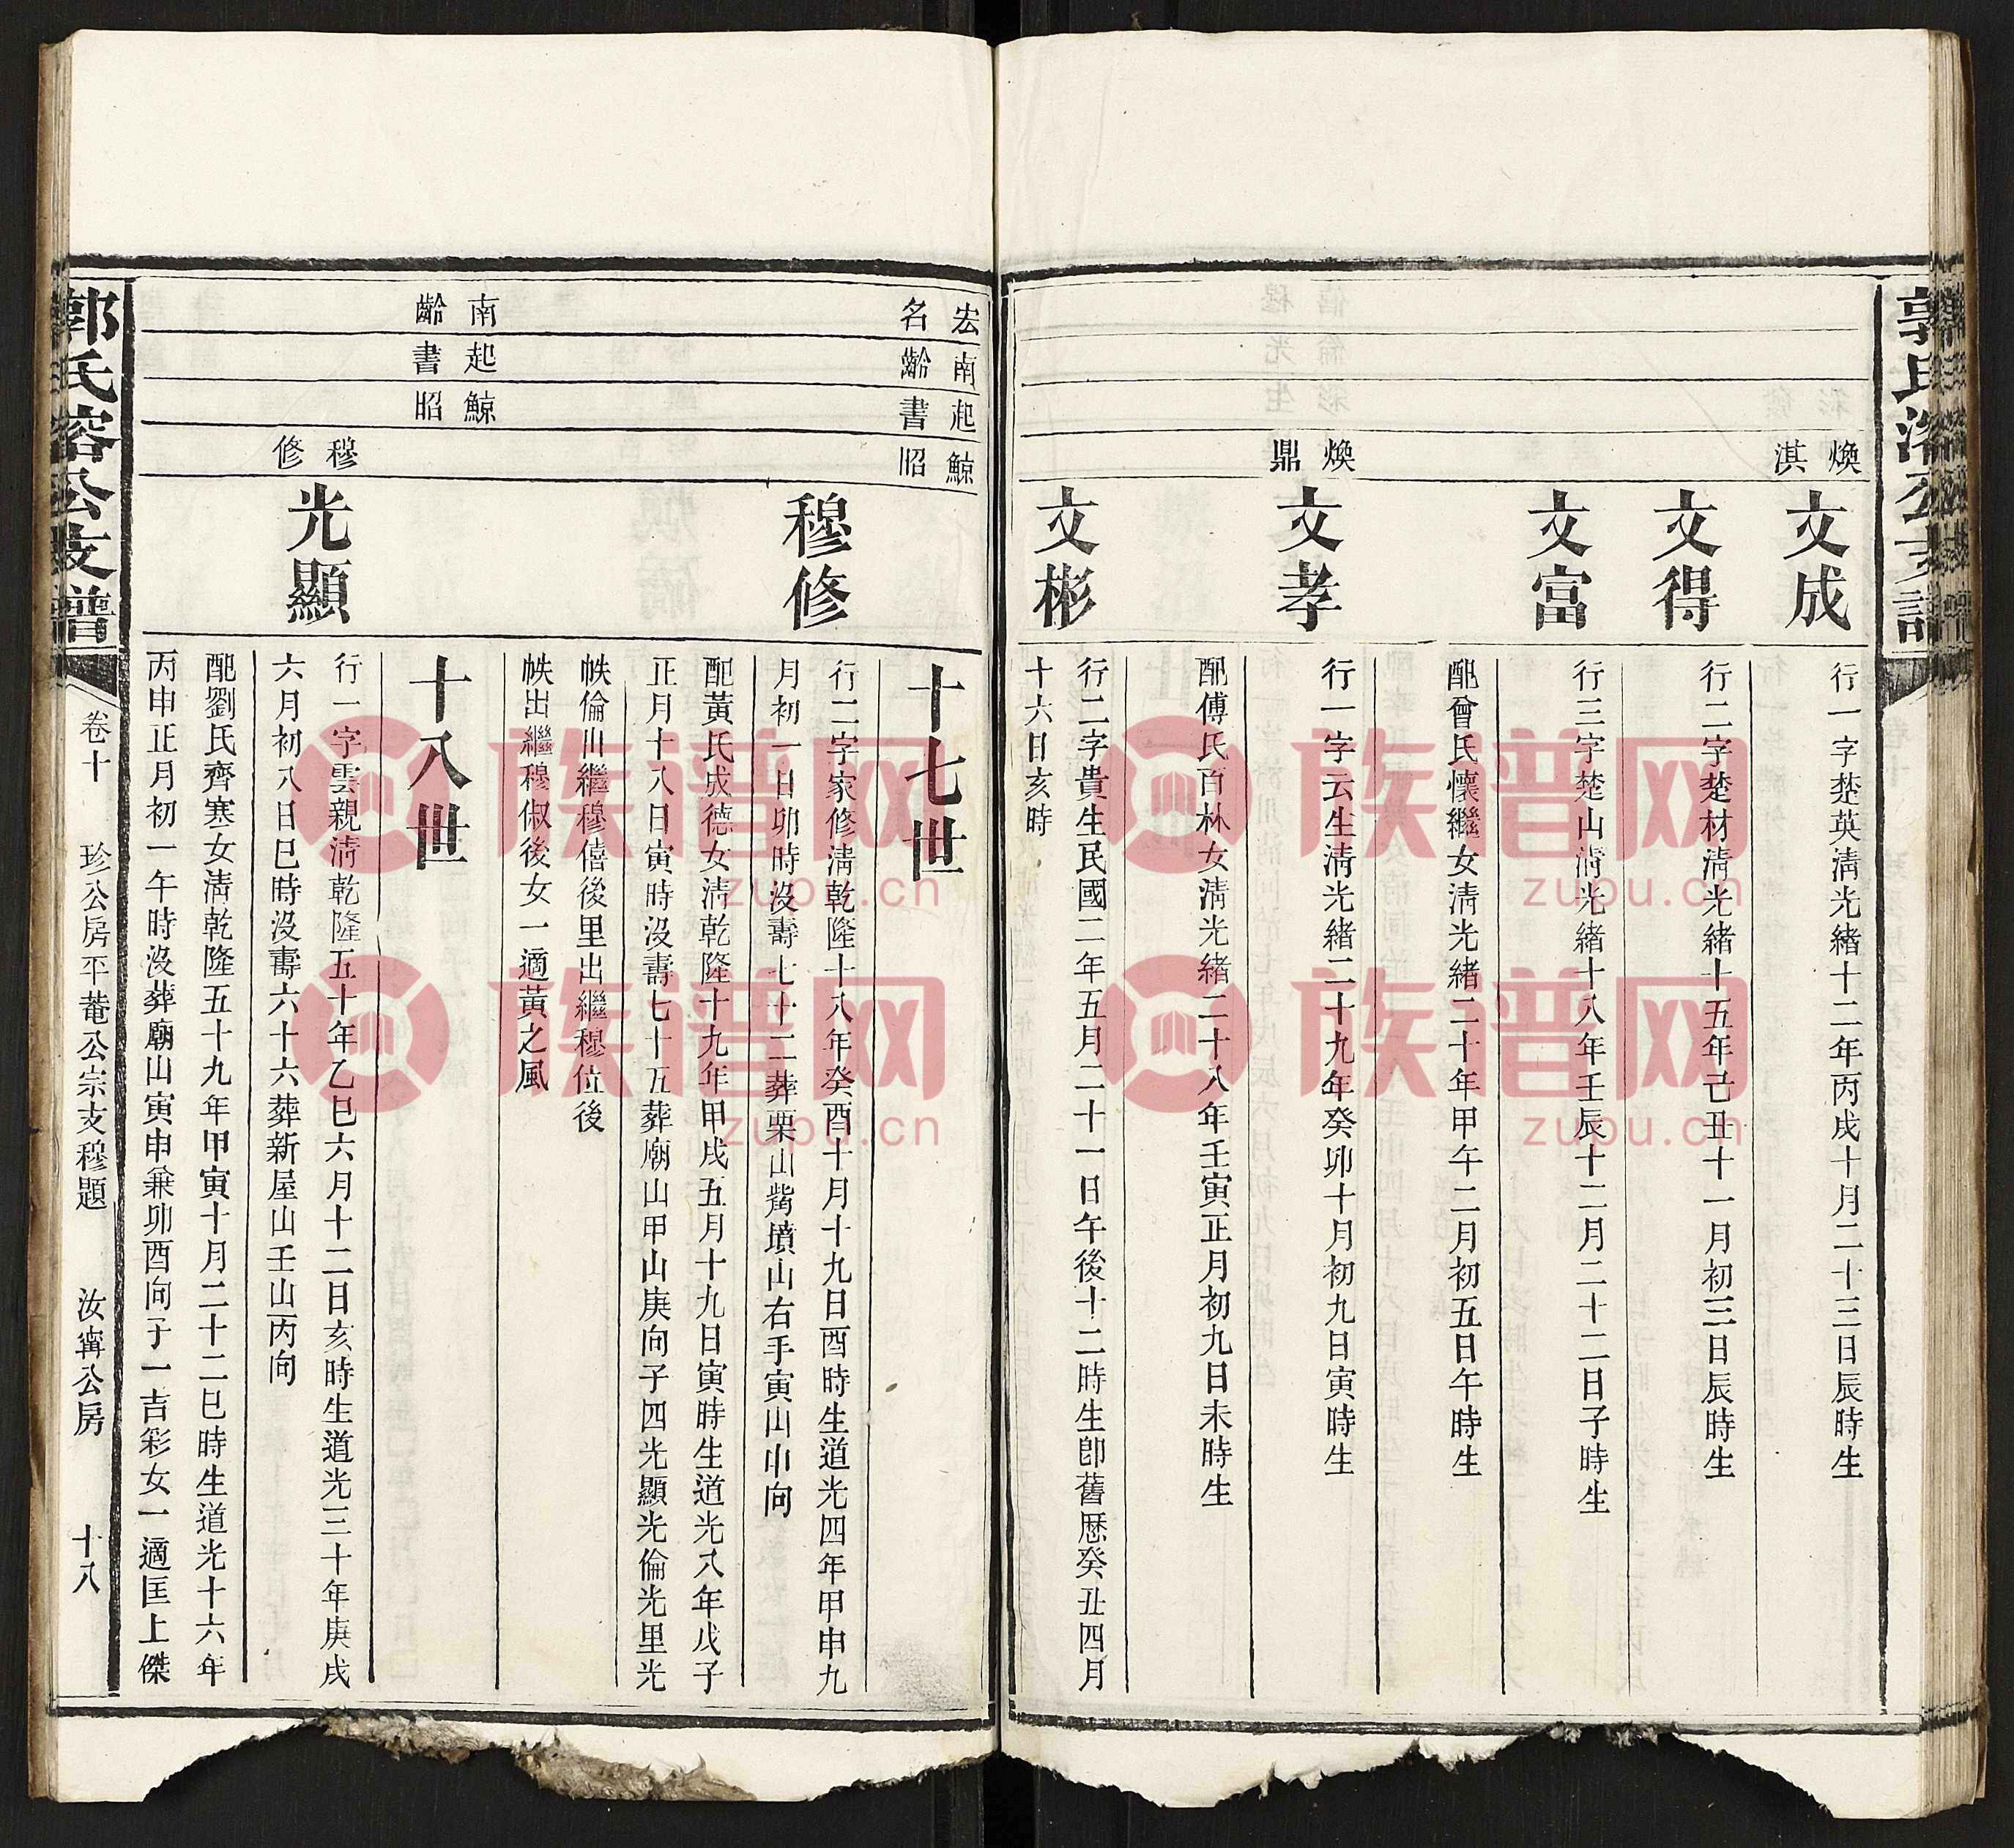 郭氏溶公支譜
煥淇
文成
行一字楚英淸光緒十二年丙戌十月二十三日辰時生
文得
行二字楚材淸光緒十五年己丑十一月初三日辰時生
文富
行三字楚山淸光緒十八年壬辰十二月二十二日子時生
配曾氏懷繼女淸光緒二十年甲午二月初五日午時生
煥鼎
文孝
行一字云生淸光緒二十九年癸卯十月初九日寅時生
配傅氏百林女淸光緒二十八年壬寅正月初九日未時生
文彬
行二字貴生民國二年五月二十一日午後十二時生卽舊歷癸丑四月
十六日亥時
宏名
南齡
起書
鯨昭
十七世
穆修
行二字家修淸乾隆十八年癸酉十月十九日酉時生道光四年甲申九
月初一日卯時沒壽七十二葬栗山觜墳山右手寅山申向
配黃氏成德女淸乾隆十九年甲戌五月十九日寅時生道光八年戊子
正月十八日寅時沒壽七十五葬廟山甲山庚向子四光顯光倫光里光
帙倫出繼穆僖後里出繼穆位後
帙出繼穆俶後女一適黃之風
南齡
起書
鯨昭
十八世
穆修
光顯
行一字雲親淸乾隆五十年乙巳六月十二日亥時生道光三十年庚戌
六月初八日巳時沒壽六十六葬新屋山壬山丙向
配劉氏齊寒女淸乾隆五十九年甲寅十月二十二巳時生道光十六年
丙申正月初一午時沒葬廟山寅申兼卯酉向子一吉彩女一適匡上傑
郭氏溶公支譜
卷十 珍公房平菴公宗支穆題 汝甯公房 十八
族谱网
zupu.cn
族谱网
zupu.cn
族谱网
zupu.cn
族谱网
zupu.cn